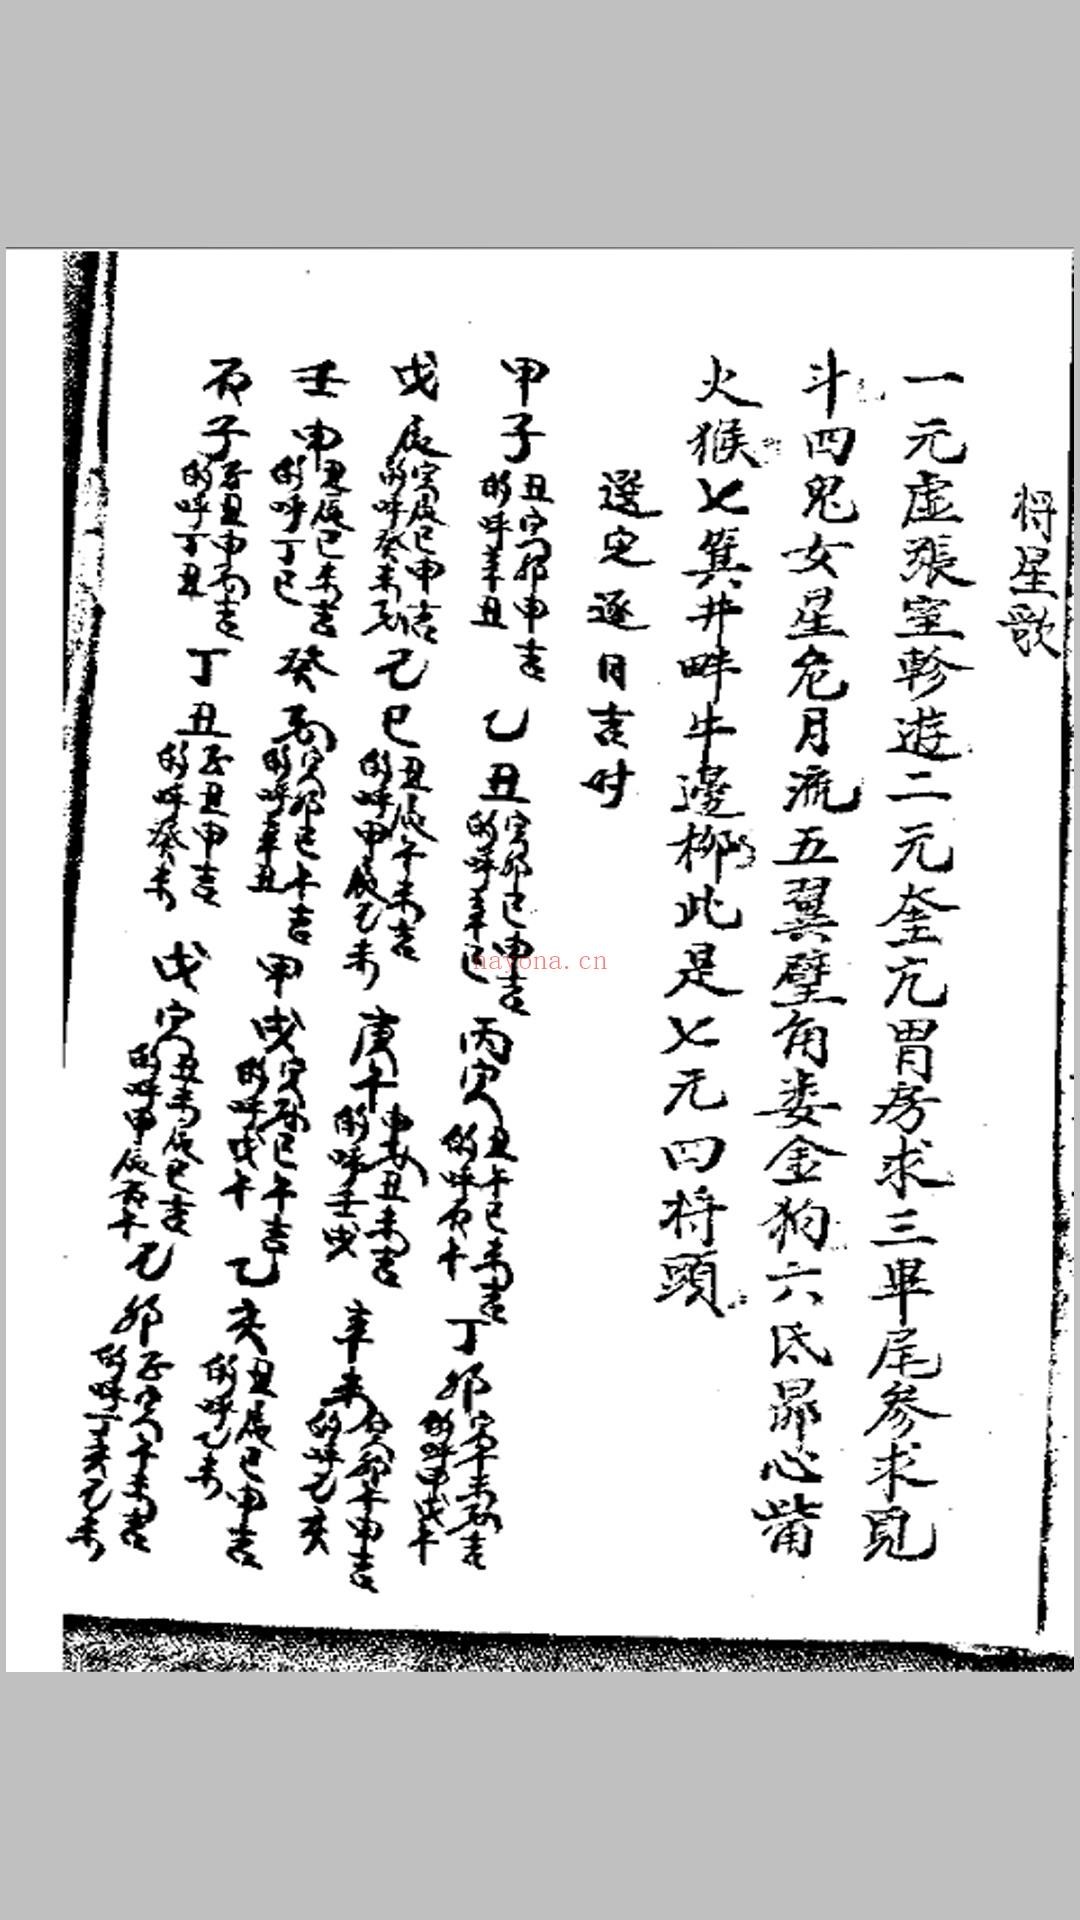 将星歌
一元虚張室軫遊二元奎亢胃房求三畢尾參求覓
斗四鬼女星危月流五翼壁角娄金狗六氐昴心觜
火猴七箕井畔牛邊柳此是七元四将頭
選定逐日吉时
甲子丑寅卯申吉的呼辛丑 乙丑寅卯巳申吉的呼辛巳 丙寅丑午巳未吉的呼丙午 丁卯寅午未吉的呼甲戌午
戊辰寅辰巳申吉的呼癸未 己巳丑辰午未吉的呼甲辰乙未 庚午申丑未吉的呼壬戌 辛未寅卯午申吉的呼乙亥
壬申丑辰巳未吉的呼丁巳 癸酉寅卯巳午吉的呼辛丑 甲戌寅巳午吉的呼戊午 乙亥丑辰巳申吉的呼乙未
丙子子丑申酉吉的呼丁丑 丁丑子丑申吉的呼癸未 戊寅丑未辰巳吉的呼甲辰丙午 己卯子寅午未吉的呼丁亥乙未
nayona.cn